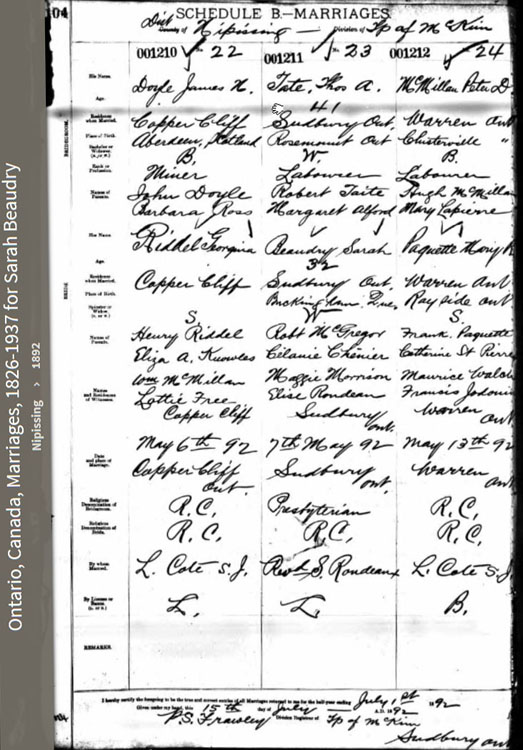 Ontario, Canada, Marriages, 1826-1937 for Sarah Beaudry
Nipissing > 1892
04
SCHEDULE B.—MARRIAGES
Dist
County of Nipissing Division of Tp of McKim
001210 22 001211 23 001212 24
His Name. Doyle James Tate, Thos A. McMillan Peter D.
Age. 41
Residence when Married. Copper Cliff Sudbury Ont. Warren Ont
Place of Birth. Aberdeen, Rosemount Ont "
Bachelor or Widower (B. or W.) B. W. B.
Rank or Profession. Miner Labourer Labourer
Names of Parents. John Doyle Robert Taite Hugh McMillan
Barbara Ross Margaret Alford Mary Lapierre
BRIDEGROOM.
Her Name. Riddel Georgina Beaudry Sarah Paquette Mary
Age. 32
Residence when Married. Copper Cliff Sudbury Ont. Warren Ont
Place of Birth. Buckingham. Que. Rayside Ont
Spinster or Widow (S. or W.) S. W S.
Names of Parents. Henry Riddel Robt McGregor Frank Paquette
Eliza A. Knowles Celanie Chenier Catherine St Pierre
BRIDE.
Names and Residences of Witnesses. Wm McMillan Maggie Morrison Maurice Walsh
Lottie Free Elise Rondeau Francis Jodouin
Copper Cliff Sudbury Ont. Warren Ont.
Date and place of Marriage. May 6th 92 7th May 92 May 13th 92
Copper Cliff Ont. Sudbury Ont. Warren Ont
Religious Denomination of Bridegroom. R.C. Presbyterian R.C.
Religious Denomination of Bride. R.C. R.C. R.C.
By whom Married. L. Coté S.J. Revd S. Rondeau L. Coté S.J
By License or Banns. (L. or B.) L. L. B.
REMARKS.
I hereby certify the foregoing to be the true and correct entries of all Marriages returned to me for the half-year ending July 1st 1892
Given under my hand, this 15th day of July A.D. 1892
Frawley Division Registrar of Tp of McKim
Sudbury Ont